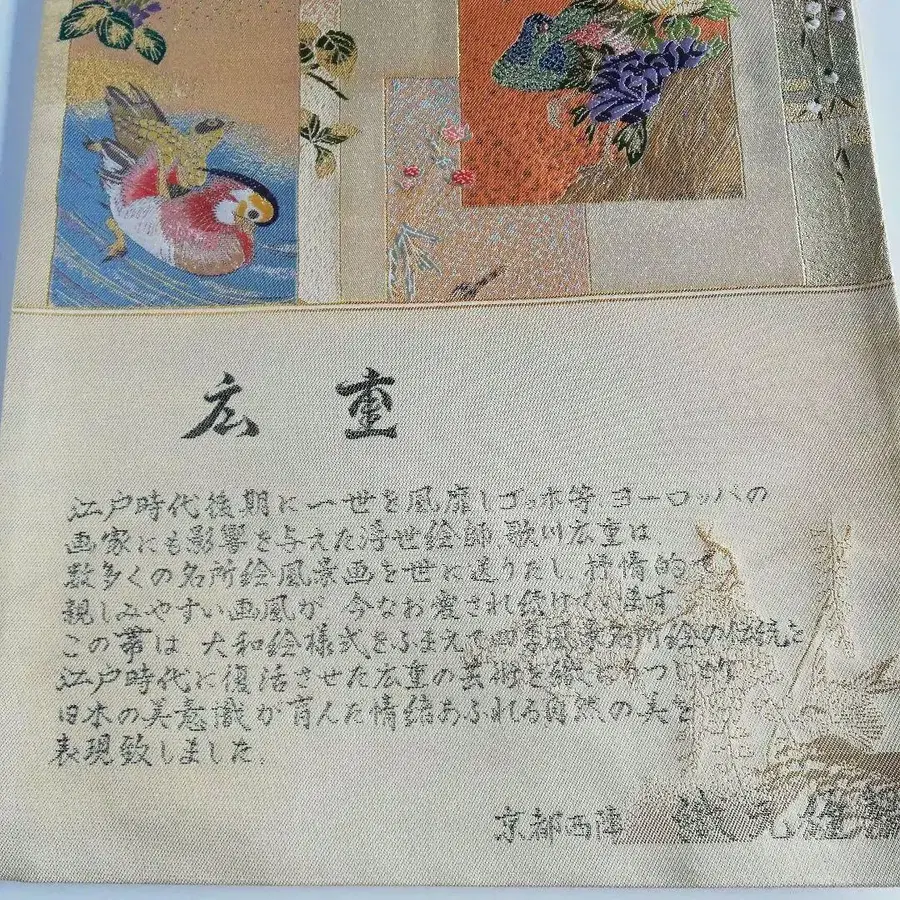 広重
江戸時代後期に一世を風靡しゴッホ等ヨーロッパの
画家にも影響を与えた浮世絵師、歌川広重は
数多くの名所絵風景画を世に送りだし、抒情的で
親しみやすい画風が、今なお愛され続けています。
この帯は、大和絵様式をふまえて四季風景名所絵の伝統を
江戸時代に復活させた広重の芸術を織におりつづり
日本の美意識が育んだ情緒あふれる自然の美を
表現致しました。
京都西陣 織元